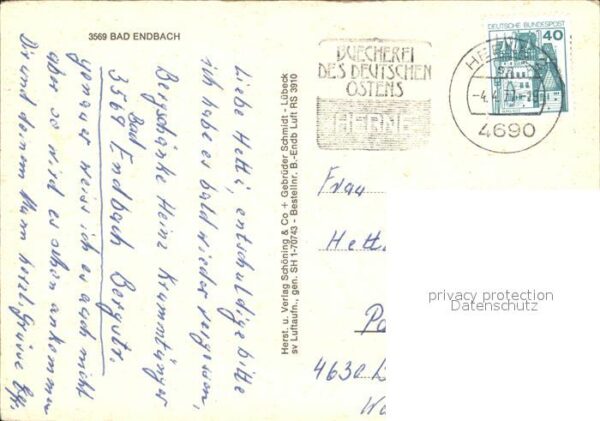 3569 BAD ENDBACH
Liebe Hetti, entschuldige bitte
ich habe es bald wieder vergessen,
Bergschänke Heinz Krumminger
Bad
3569 Endbach Bergstr.
genauer weiss ich es auch nicht
aber so wird es schon ankommen
Dir und deinem Mann herzl. Grüsse Eff.
Herst. u. Verlag Schöning & Co + Gebrüder Schmidt - Lübeck
sv Luftaufn., gen. SH 1-70743 - Bestellnr. B.-Endb Luft RS 3910
BUECHEREI
DES DEUTSCHEN
OSTENS
HERNE
DEUTSCHE BUNDESPOST
40
HERNE
4690
Frau
Hett
4630
privacy protection
Datenschutz